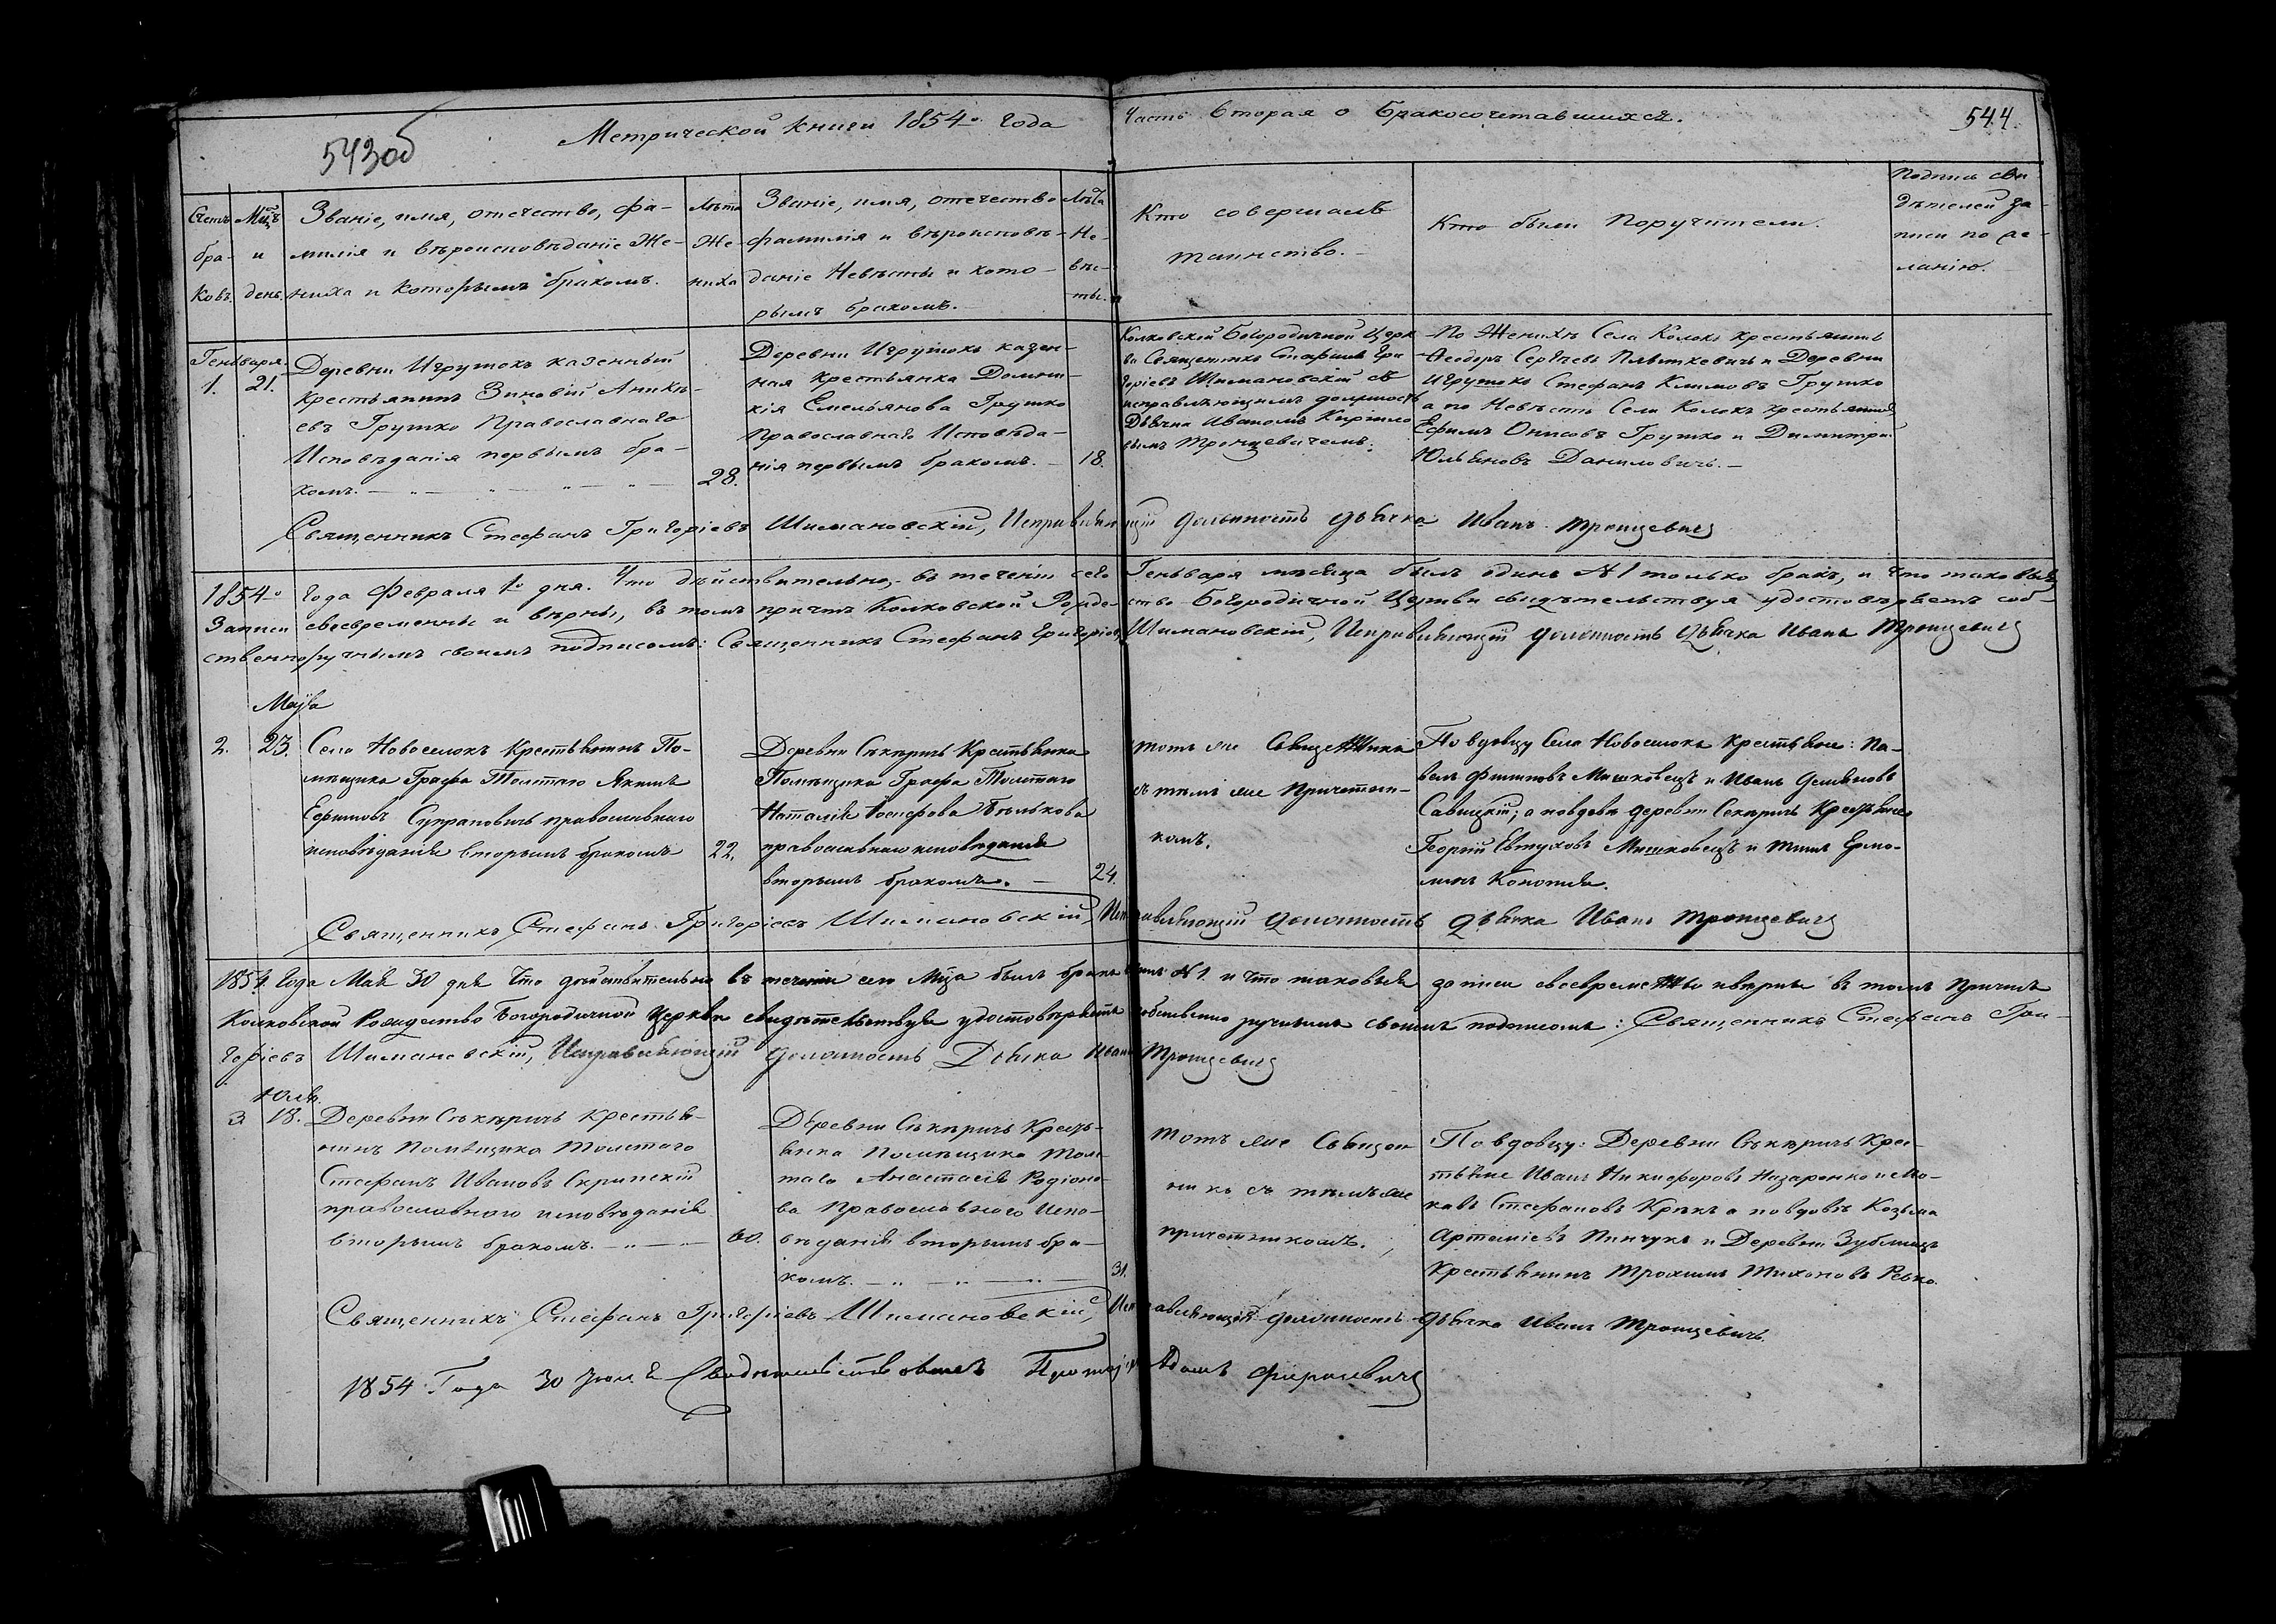 543об
Метрической книги 1854го года
Часть вторая о Бракосочетавшихся.
544.
Счетъ браковъ.
Мцъ и день.
Званіе, имя, отечество, фа-
милія и вѣроисповѣданіе Же-
ниха и которымъ бракомъ.
Лѣта
Же-
ниха
Званіе, имя, отечество
фамилія и вѣроисповѣ-
даніе Невѣсты и кото-
рымъ бракомъ.
Лѣта
Не-
вѣс-
ты.
Кто совершалъ
таинство.
Кто были Поручители.
Подпись сви
дѣтелей за-
писи по же-
ланію.
Генваря
1. 21.
Деревни Игрушокъ казенный
крестьянинъ Зиновій Аникѣ-
евъ Грушко Православнаго
Исповѣданія первымъ бра-
комъ.
28.
Деревни Игрушокъ казен-
ная крестьянка Домни-
кія Емельянова Грушко
Православнаго Исповѣда-
нія первымъ бракомъ.
18.
Колковской Богородичной Церк
ви Священникъ Стефанъ Гри
горіевъ Шимановскій съ
исправляющимъ должность
Дьячка Иваномъ Кирило
вымъ Тронцевичемъ.
По Женихѣ Села Колокъ крестьянинъ
Феодоръ Сергѣевъ Плышкевичъ и Деревни
Игрушокъ Стефанъ Климовъ Грушко
а по Невѣстѣ Села Колокъ крестьянинъ
Ефимъ Онисовъ Грушко и Димитрій
Юльяновъ Даниловичъ.
Священникъ Стефанъ Григоріевъ Шимановскій, Исправляющій должность дьячка Иванъ Тронцевичъ
1854го года Февраля 1го дня. Что дѣйствительно, въ теченіи сего Генваря мѣсяца былъ одинъ №1 только бракъ, и что таковыя
Записи своевременны и вѣрны, въ томъ причтъ Колковской Рожде-ство-Богородичной Церкви свидѣтельствуя удостовѣряетъ соб-
ственноручнымъ своимъ подписомъ: Священникъ Стефанъ Григоріевъ Шимановскій, Исправляющій должность Дьячка Иванъ Тронцевичъ
Маія
2. 23.
Села Новоселокъ Крестьянинъ По-
мѣщика Графа Толстаго Якимъ
Ефимовъ Супрановичъ православнаго
исповѣданія вторымъ бракомъ
22.
Деревни Сѣкѣричъ Крестьянка
Помѣщика Графа Толстаго
Наталія Іосифова Бѣлькова
православнаго исповѣданія
вторымъ бракомъ.
24.
тотъ же Священникъ
съ тѣмъ же Причетни-
комъ.
По вдовцу Села Новоселокъ Крестьяне: Па-
велъ Филиповъ Мишковецъ и Иванъ Демьяновъ
Савицкій; а по вдовѣ деревни Секѣричъ Крестьяне
Георгій Евтуховъ Мишковецъ и
Священникъ Стефанъ Григоріевъ Шимановскій, Исправляющій должность дьячка Иванъ Тронцевичъ
1854. Года Мая 30 дня Что дѣйствительно въ теченіи сего Мца былъ бракъ одинъ №1. и что таковыя записи своевременны и вѣрны въ томъ Причтъ
Колковской Рождество Богородичной Церкви свидѣтельствуя удостовѣряетъ собственно ручнымъ своимъ подписомъ: Священникъ Стефанъ Гри-
горіевъ Шимановскій, Исправляющій должность Дьячка Иванъ Тронцевичъ
Юля.
3 18.
Деревни Сѣкѣричъ Крестья-
нинъ Помѣщика Толстаго
Стефанъ Ивановъ Скрипскій
православного исповѣданія
вторымъ бракомъ.
60.
Деревни Сѣкѣричъ Кресть-
янка Помѣщика Толс-
таго Анастасія Родіоно-
ва Православного Испо-
вѣданія вторымъ бра-
комъ.
31.
тотъ же Священ
никъ съ тѣмъ же
причетникомъ.
По вдовцу: Деревни Сѣкѣричъ Крес-
тьяне Иванъ Никифоровъ Назаренко и
Стефановъ а по вдовѣ Козьма
Артеміевъ Пинчукъ и Деревни Зублищъ
Крестьянинъ Трохимъ Тихоновъ Ревко.
Священникъ Стефанъ Григоріевъ Шимановскій, Исправляющій должность дьячка Иванъ Тронцевичъ.
1854 Года 30 Свидѣтельствовалъ Протоіерей Адамъ